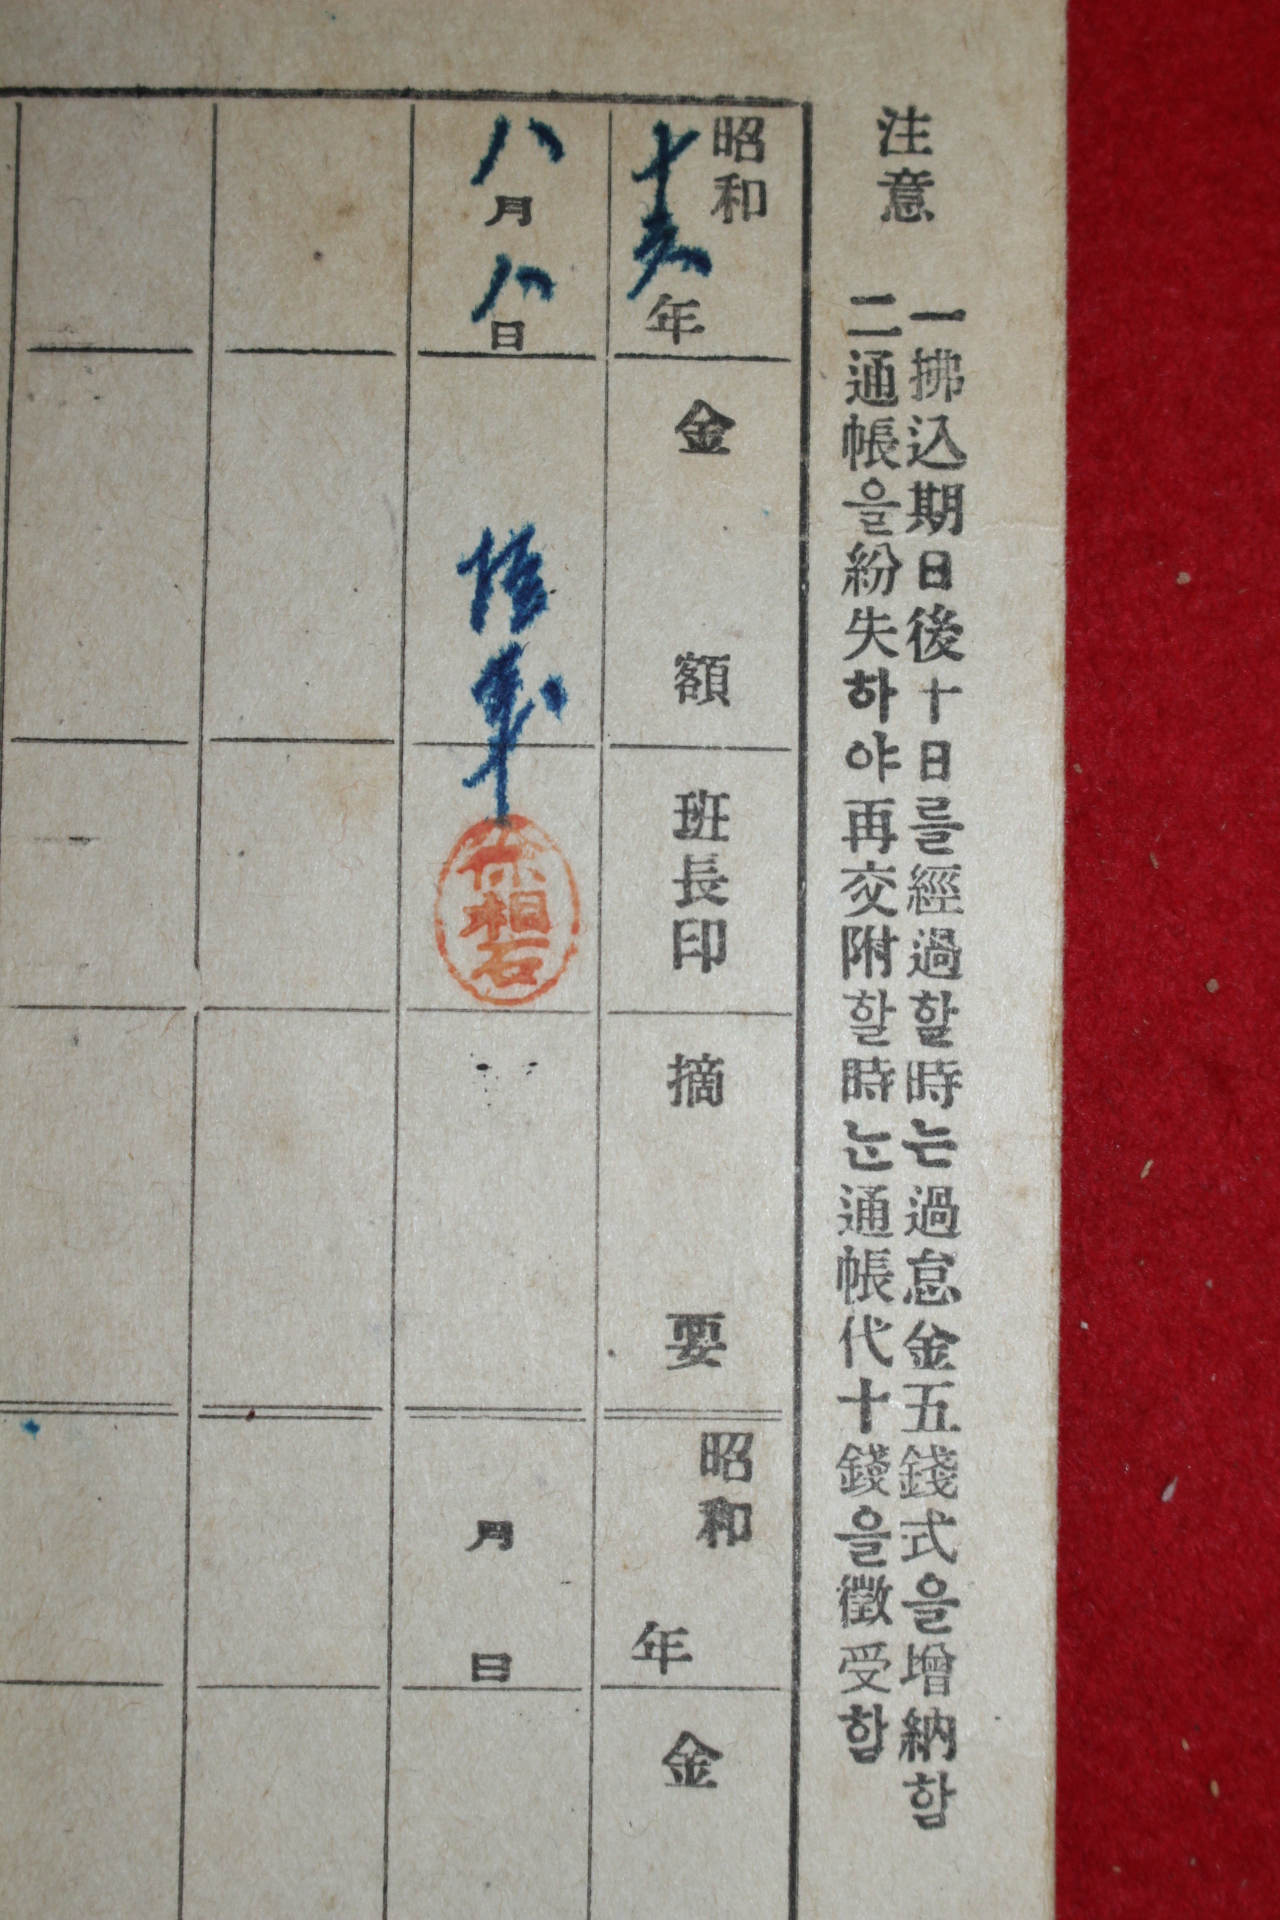 注意
一 拂込期日後十日를經過할時는過怠金五錢式을增納함
二 通帳을紛失하야再交附할時는通帳代十錢을徵受함
昭和十六年
金額
班長印
摘要
八月八日
伍
相石
昭和 年
金
月 日